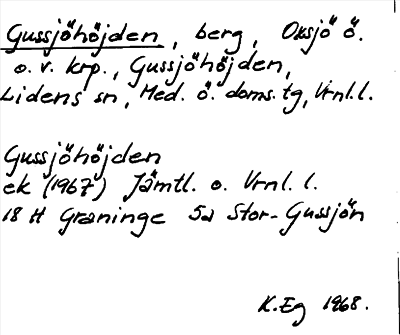 Gussjöhöjden, berg, Oxsjö ö.
o. v. krp., Gussjöhöjden,
Lidens sn, Med. ö. doms. tg, Vrnl. l.
Gussjöhöjden
ek (1967) Jämtl. o. Vrnl. l.
18 H Graninge 5a Stor-Gussjön
K. Eg 1968.